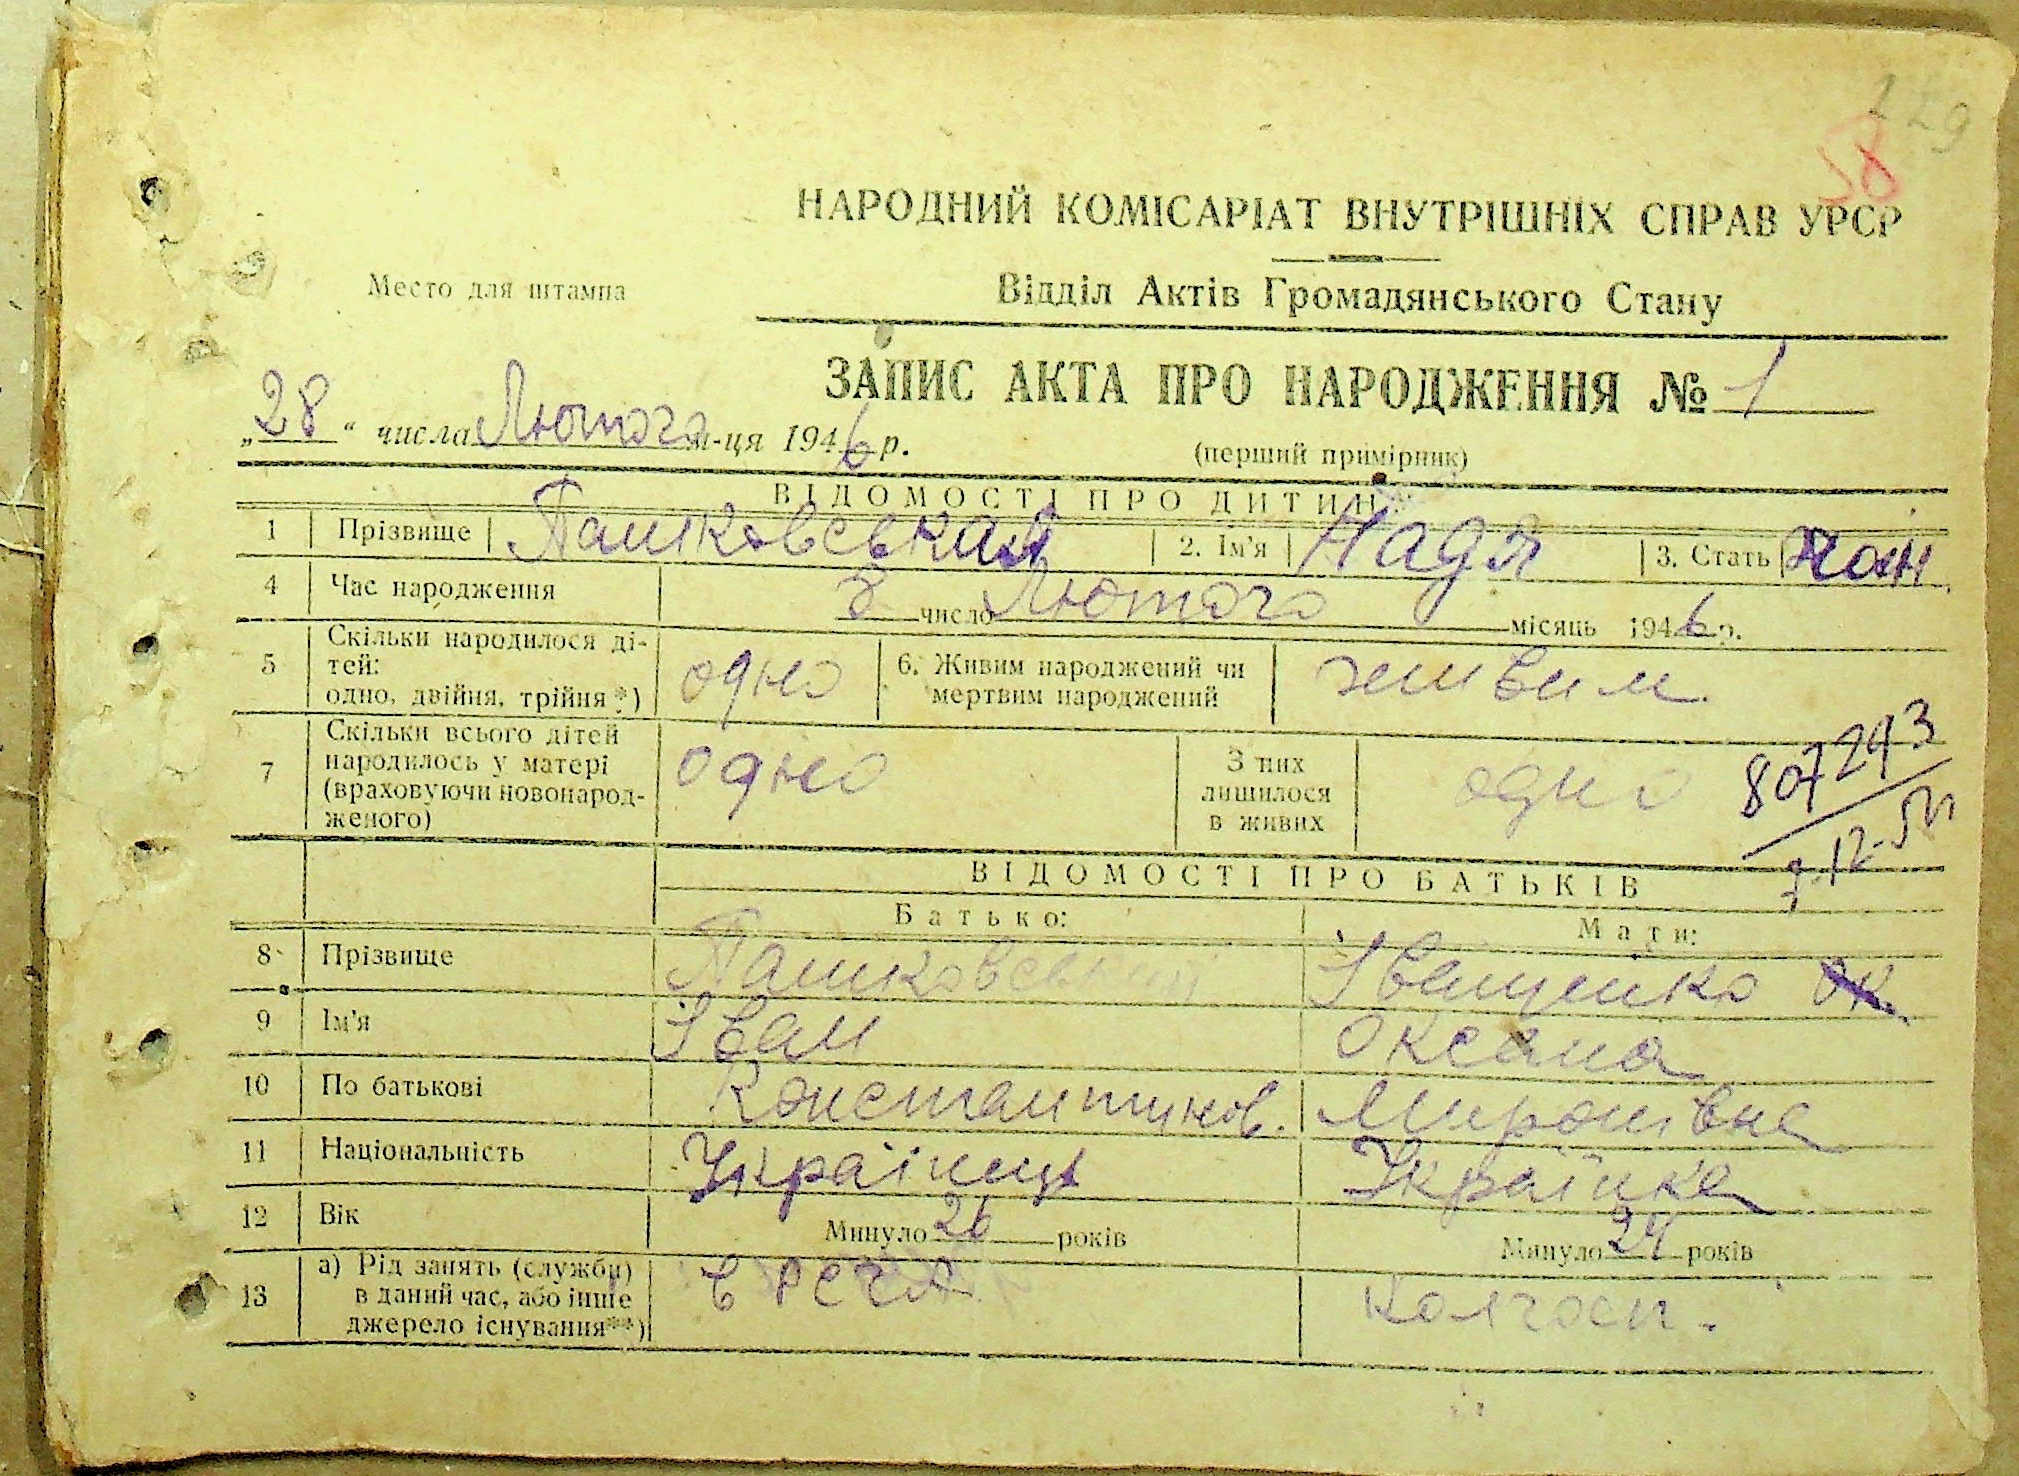 229
58
НАРОДНИЙ КОМІСАРІАТ ВНУТРІШНІХ СПРАВ УРСР
Место для штампа
Відділ Актів Громадянського Стану
ЗАПИС АКТА ПРО НАРОДЖЕННЯ № 1
„28“ числа Лютого м-ця 1946 р.
(перший примірник)
ВІДОМОСТІ ПРО ДИТИНУ
1 Прізвище Пашковськая 2. Ім'я Надя 3. Стать жін
4 Час народження число Лютого місяць 1946 р.
5 Скільки народилося ді-
тей:
одно, двійня, трійня*) одно 6. Живим народжений чи
мертвим народжений живим
7 Скільки всього дітей
народилось у матері
(враховуючи новонарод-
женого) одно З них
лишилося
в живих одно
807293
ВІДОМОСТІ ПРО БАТЬКІВ
Батько: Мати:
8 Прізвище Пашковський Іващенко ок.
9 Ім'я Іван Оксана
10 По батькові Константинов. Миронівна
11 Національність Українець Українка
12 Вік Минуло 26 років Минуло 24 років
13 а) Рід занять (служби)
в даний час, або інше
джерело існування**) в РСЧА Колгосп.